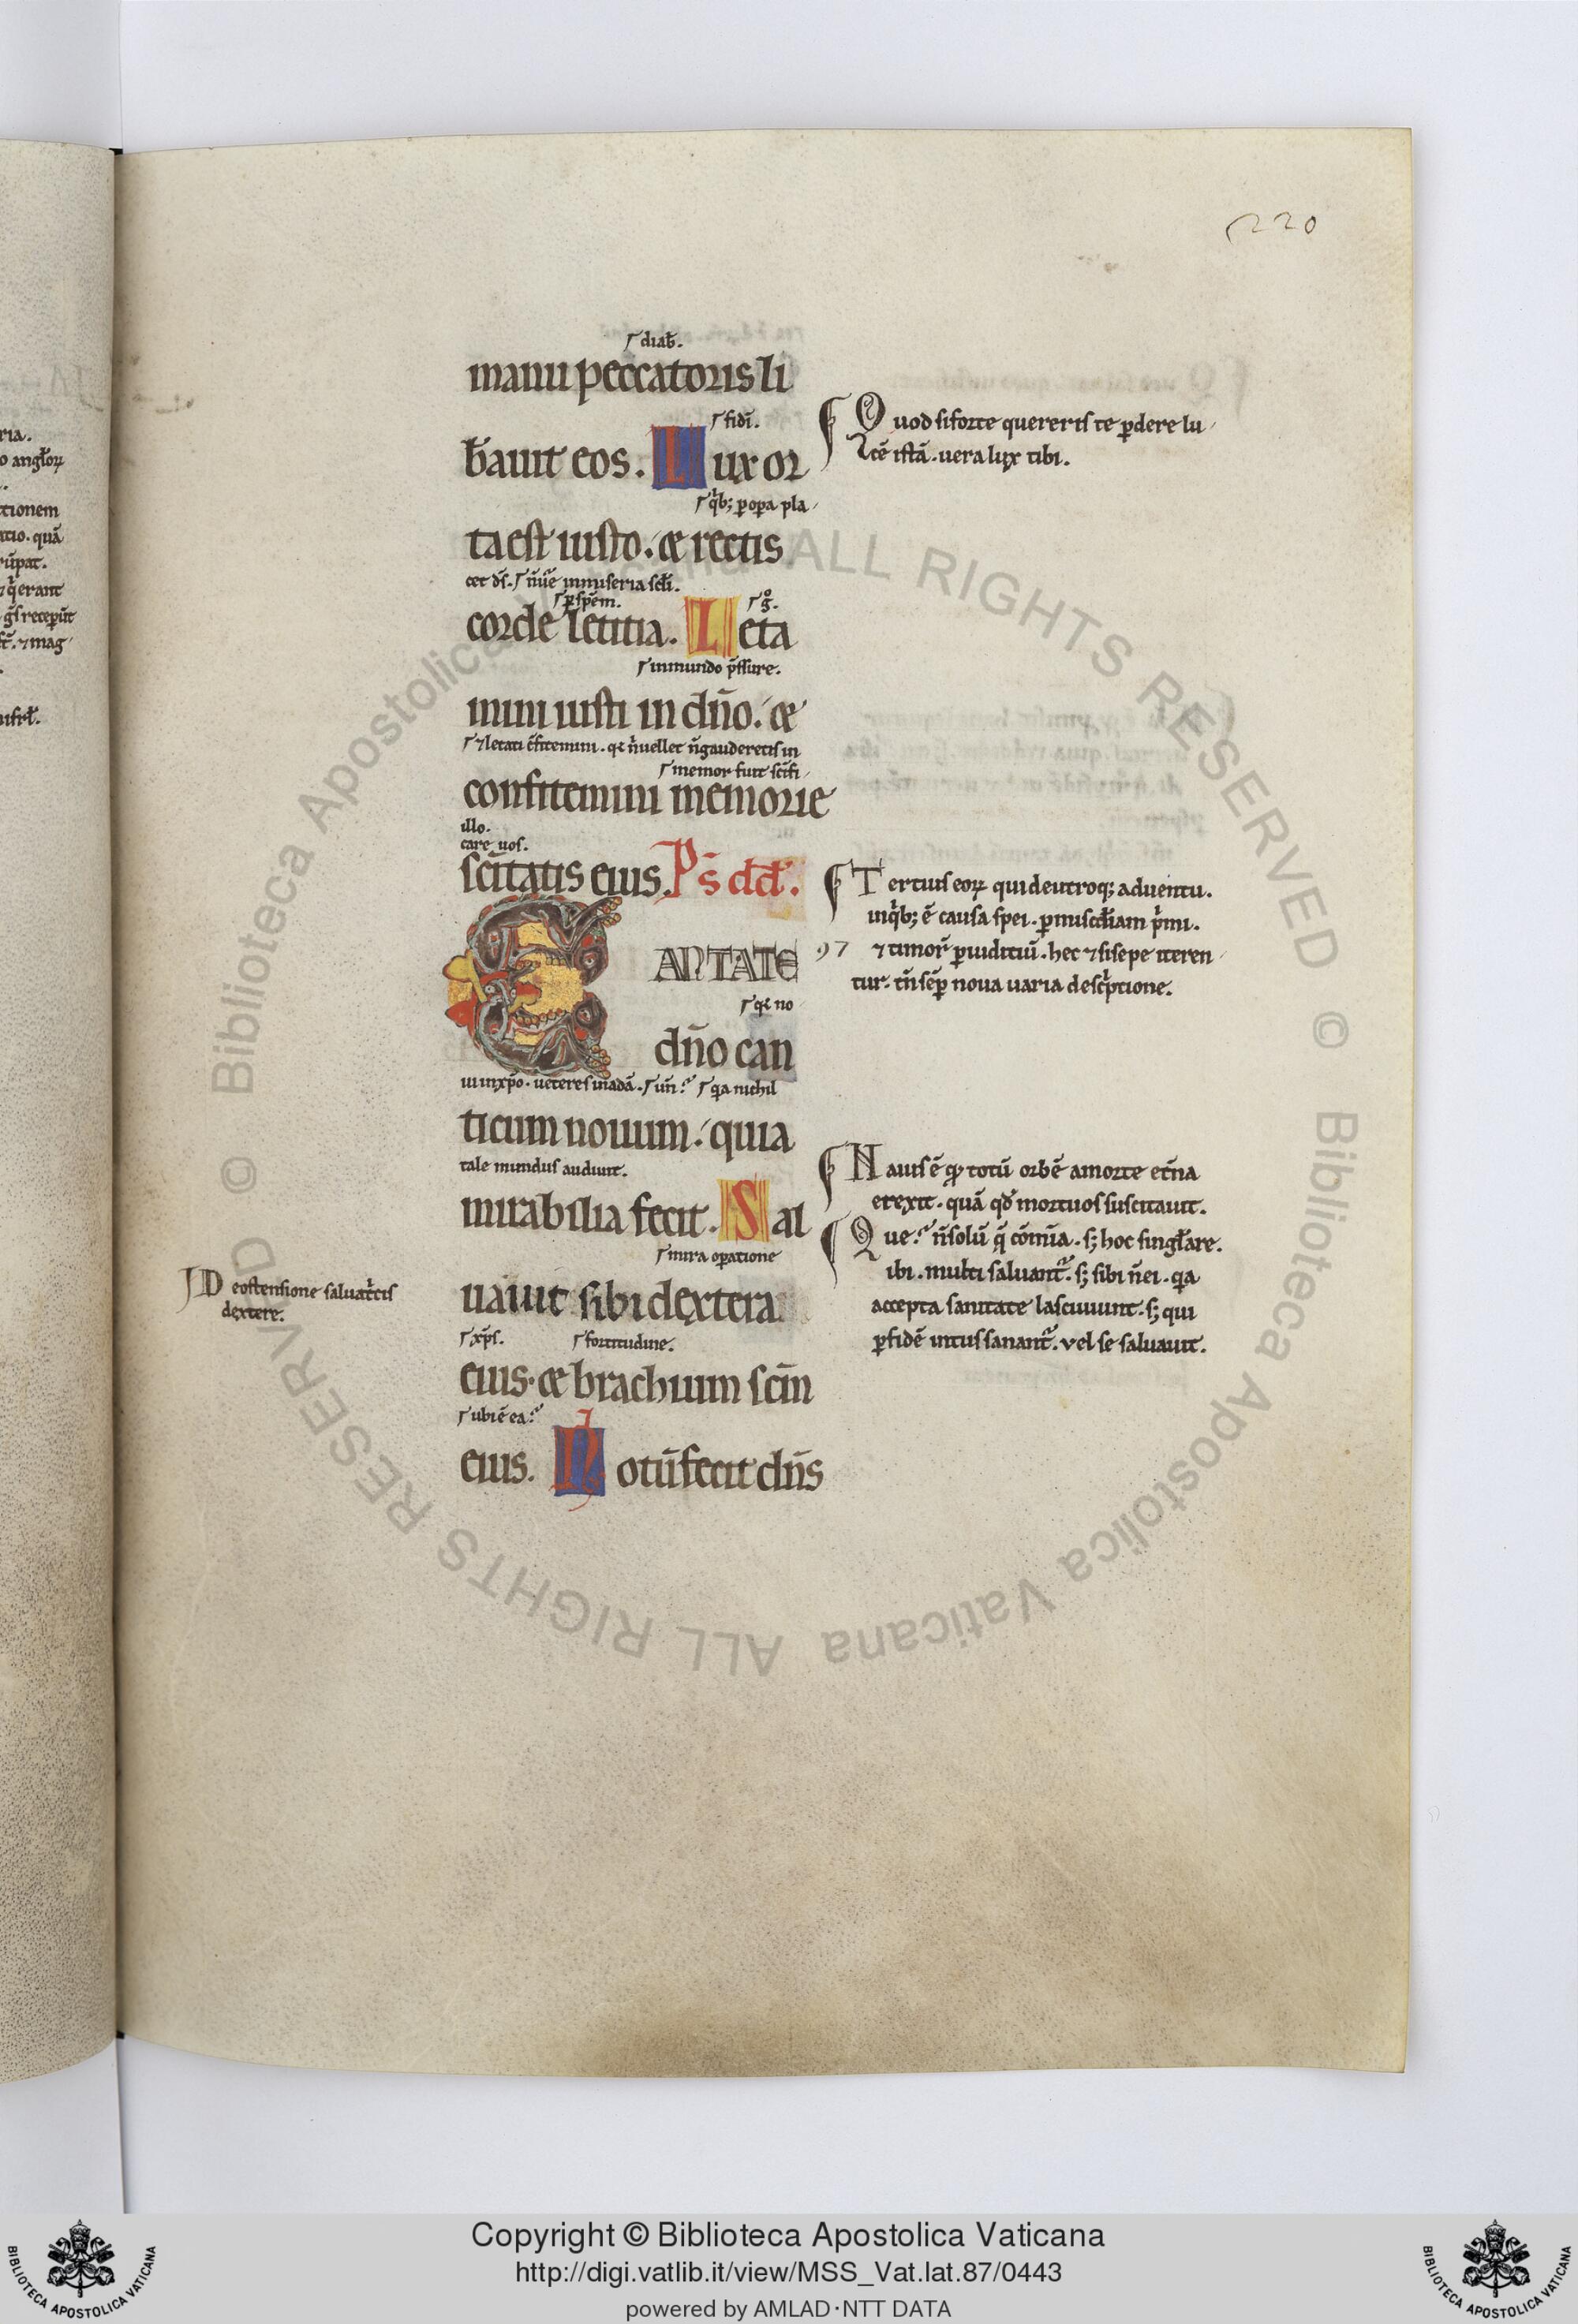 220
⸢diab̄.
manu peccatoris li
b̄auit eos. Lux or
⸢fidī.
⸢q̇b; ꝑ oꝑa pla
ta est iusto. & rectis
cet d̄s. ⸢
corde letitia. Leta
⸢ꝑ spēm.
⸢in mundo p̄ssure.
mini iusti in dn̄o. &
⸢⁊ letati
⸢memor fuit sc̄ifi
confitemini memorie
illo.
care uos.
sc̄itatis eius. Ps̄ dd̄.
CANTATE
dn̄o can
ui in xp̄o. ueteres in adā.
ticum nouum. quia
tale mundus audiuit.
mirabilia fecit. Sal
⸢mira oꝑatione
uauit sibi dextera
⸢xp̄s. ⸢fortitudine.
eius. & brachium sc̄m
⸢ubi ē ea
eius. Notū fecit dn̄s
Quod si forte quereris te ꝑdere lu
cē istā. uera lux tibi.
Tertius eoꝝ qui de utroq; aduentu.
in q̇b; ē causa spei. ꝑ
97
⁊ timor̄ ꝑ iuditiū. hec ⁊ si sepe iteren
tur. tn̄ sēꝑ noua uaria desc̄ptione.
Nauis ē totū orbē a morte et̄na
erexit. quā qđ mortuos suscitauit.
Que n̄ solū q̄ cōmūia. s; hoc singl̄are.
ibi. multi saluant᷑. s; sibi n̄ ei. qa
accepta sanitate lasciuiunt. s; qui
ꝑ fidē intus sanant᷑. vel se saluauit.
De ostensione
dextere.
ria.
o angl̄oꝝ
ctionem
atio. quā
rūpat.
q̇erant
⁊ mag
Copyright © Biblioteca Apostolica Vaticana
http://digi.vatlib.it/view/MSS_Vat.lat.87/0443
powered by AMLAD·NTT DATA
BIBLIOTECA APOSTOLICA VATICANA
BIBLIOTECA APOSTOLICA VATICANA
© Biblioteca Apostolica Vaticana ALL RIGHTS RESERVED
© Biblioteca Apostolica Vaticana ALL RIGHTS RESERVED